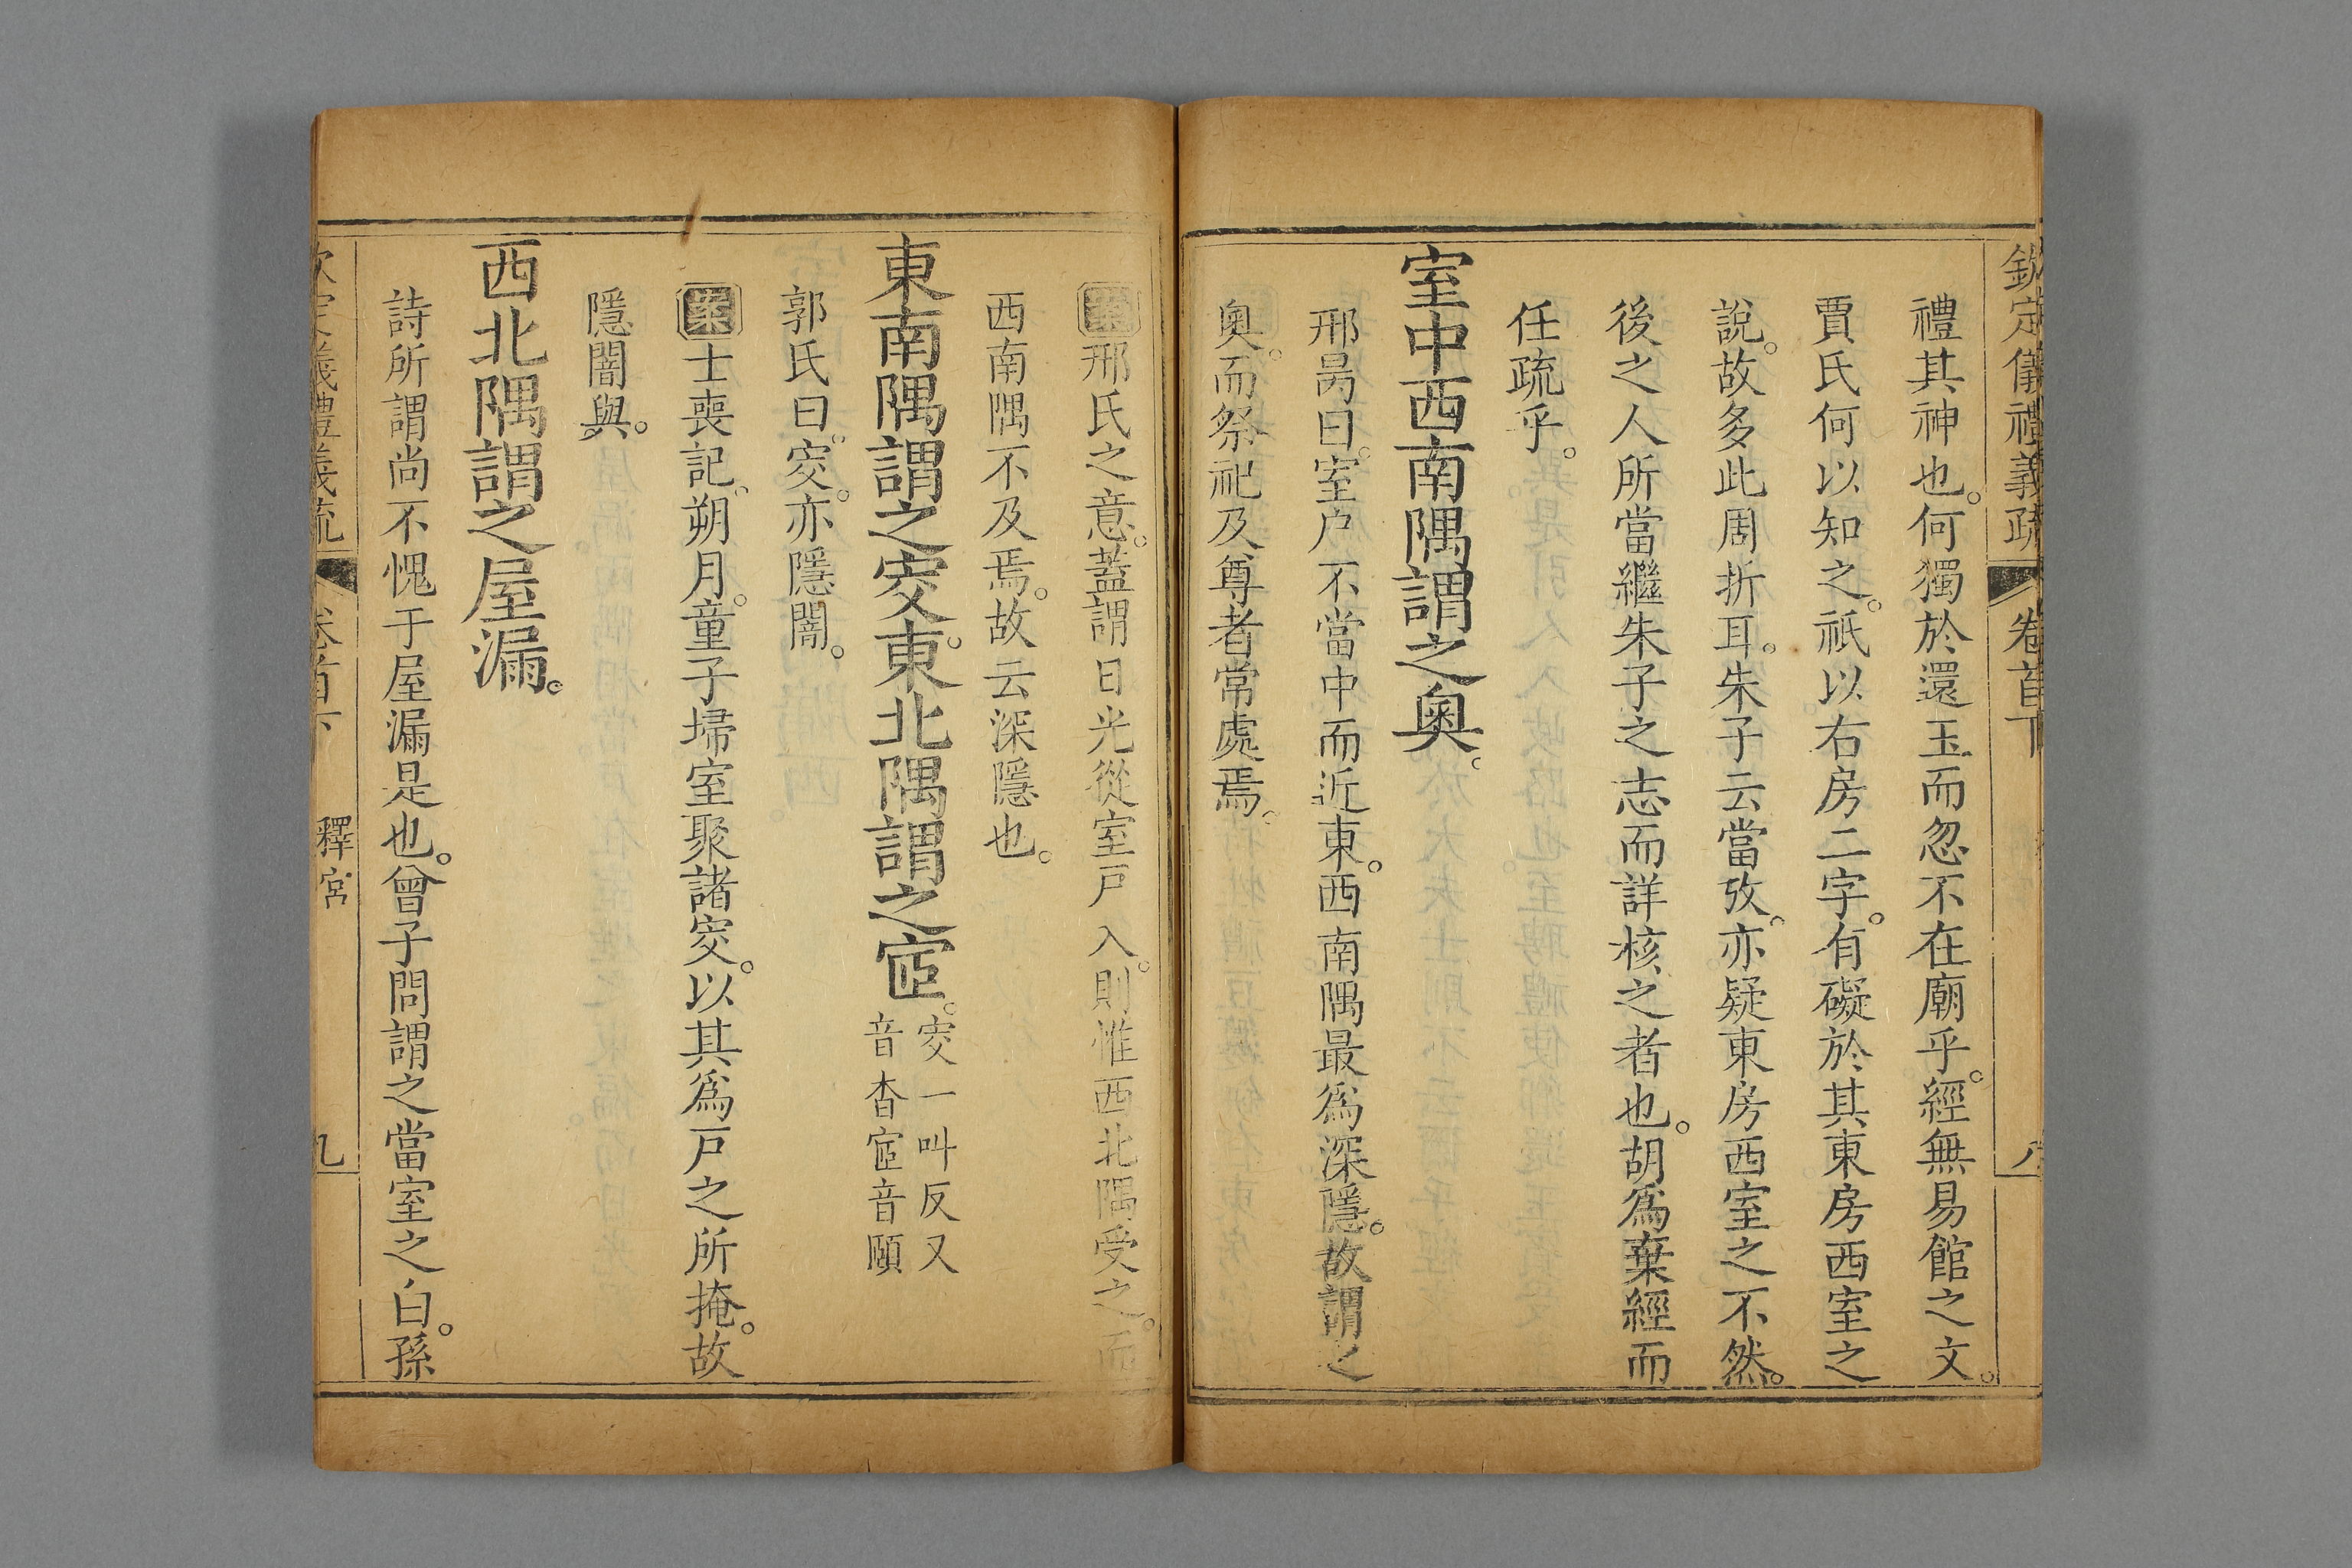 欽定儀禮義疏 卷首下 八
禮其神也。何獨於還玉而忽不在廟乎。經無易館之文。
賈氏何以知之。祇以右房二字。有礙於其東房西室之
說。故多此周折耳。朱子云當攷。亦疑東房西室之不然。
後之人所當繼朱子之志而詳核之者也。胡爲棄經而
任疏乎。
室中西南隅謂之奧。
邢昺曰。室户不當中而近東。西南隅最爲深隱。故謂之
奧。而祭祀及尊者常處焉。
案邢氏之意。蓋謂日光從室戸入。則惟西北隅受之。而
西南隅不及焉。故云深隱也。
東南隅謂之窔。東北隅謂之宧。窔一叫反又
音杳宧音頤
郭氏曰。窔。亦隱闇。
案士喪記。朔月。童子埽室聚諸窔。以其爲戸之所掩。故
隱闇與。
西北隅謂之屋漏。
詩所謂尚不愧于屋漏是也。曾子問謂之當室之白。孫
欽定儀禮義疏 卷首下 釋宮 九